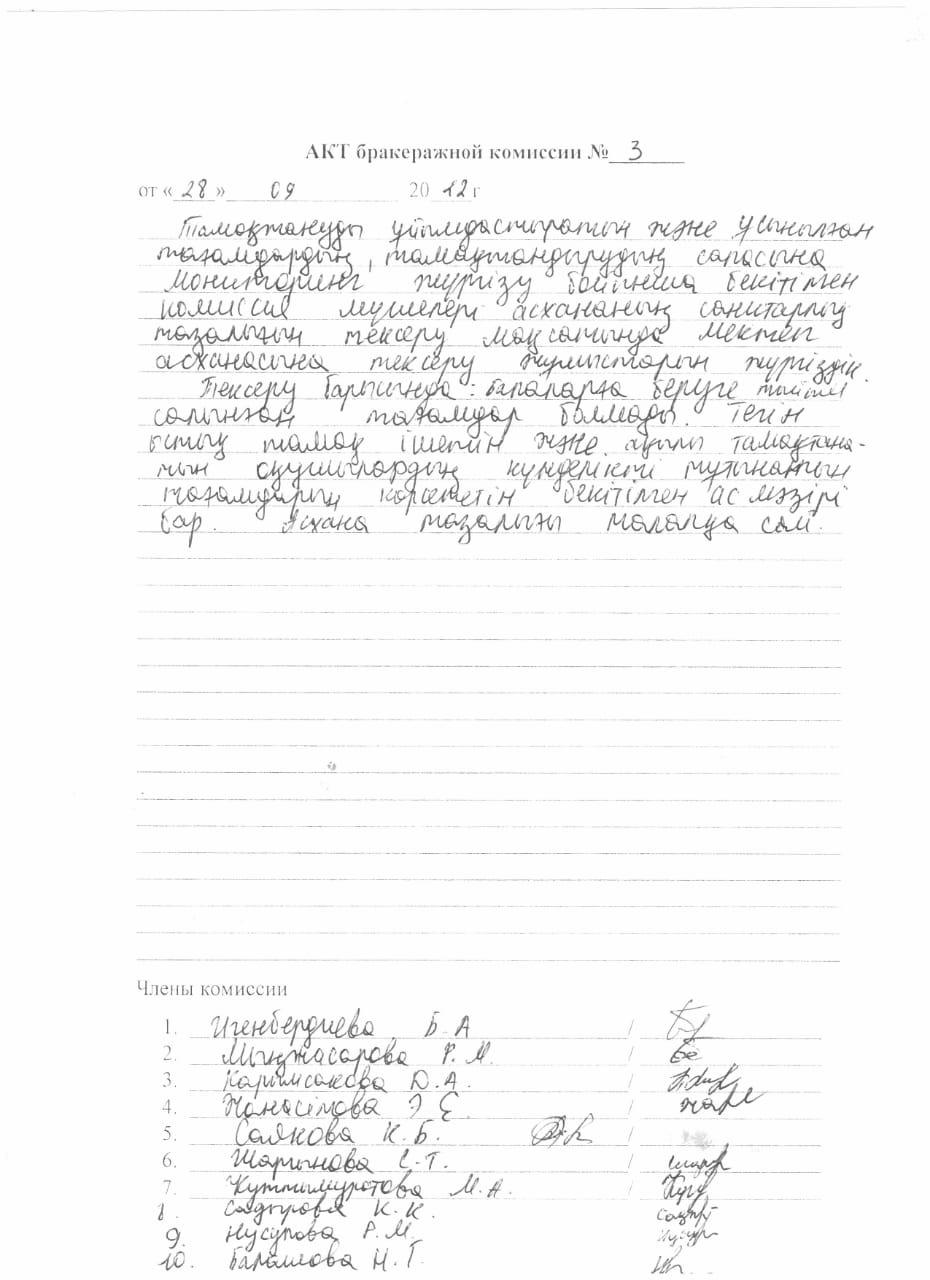 АКТ бракеражной комиссии № 3
от « 28 » 09 2012 г
Тамақтануды ұйымдастыратын және ұсынылған
тағамдардың, тамақтандырудың сапасына
мониторинг жүргізу бойынша бекітілген
комиссия мүшелері асхананың санитарлық
тазалығын тексеру мақсатында мектеп
асханасына тексеру жұмыстарын жүргіздік.
Тексеру барысында: балаларға беруге тыйым
салынған тағамдар болмады. Тегін
ыстық тамақ ішетін және ақылы тамақтана-
тын оқушылардың күнделікті тұтынатын
тағамдарын көрсететін бекітілген ас мәзірі
бар. Асхана тазалығы талапқа сай.
Члены комиссии
1. Игенбердиева Б.А /
2. Мыңжасарова Р.М. /
3. Карымсакова D.А. /
4. Жанасілова Э Е. /
5. Саякова К.Б. /
6. Шарынова С.Т. /
7. Кутлымуратова М.А. /
8. Садырова К.К.
9. Нусупова Р.М.
10. Балашова Н.Т.